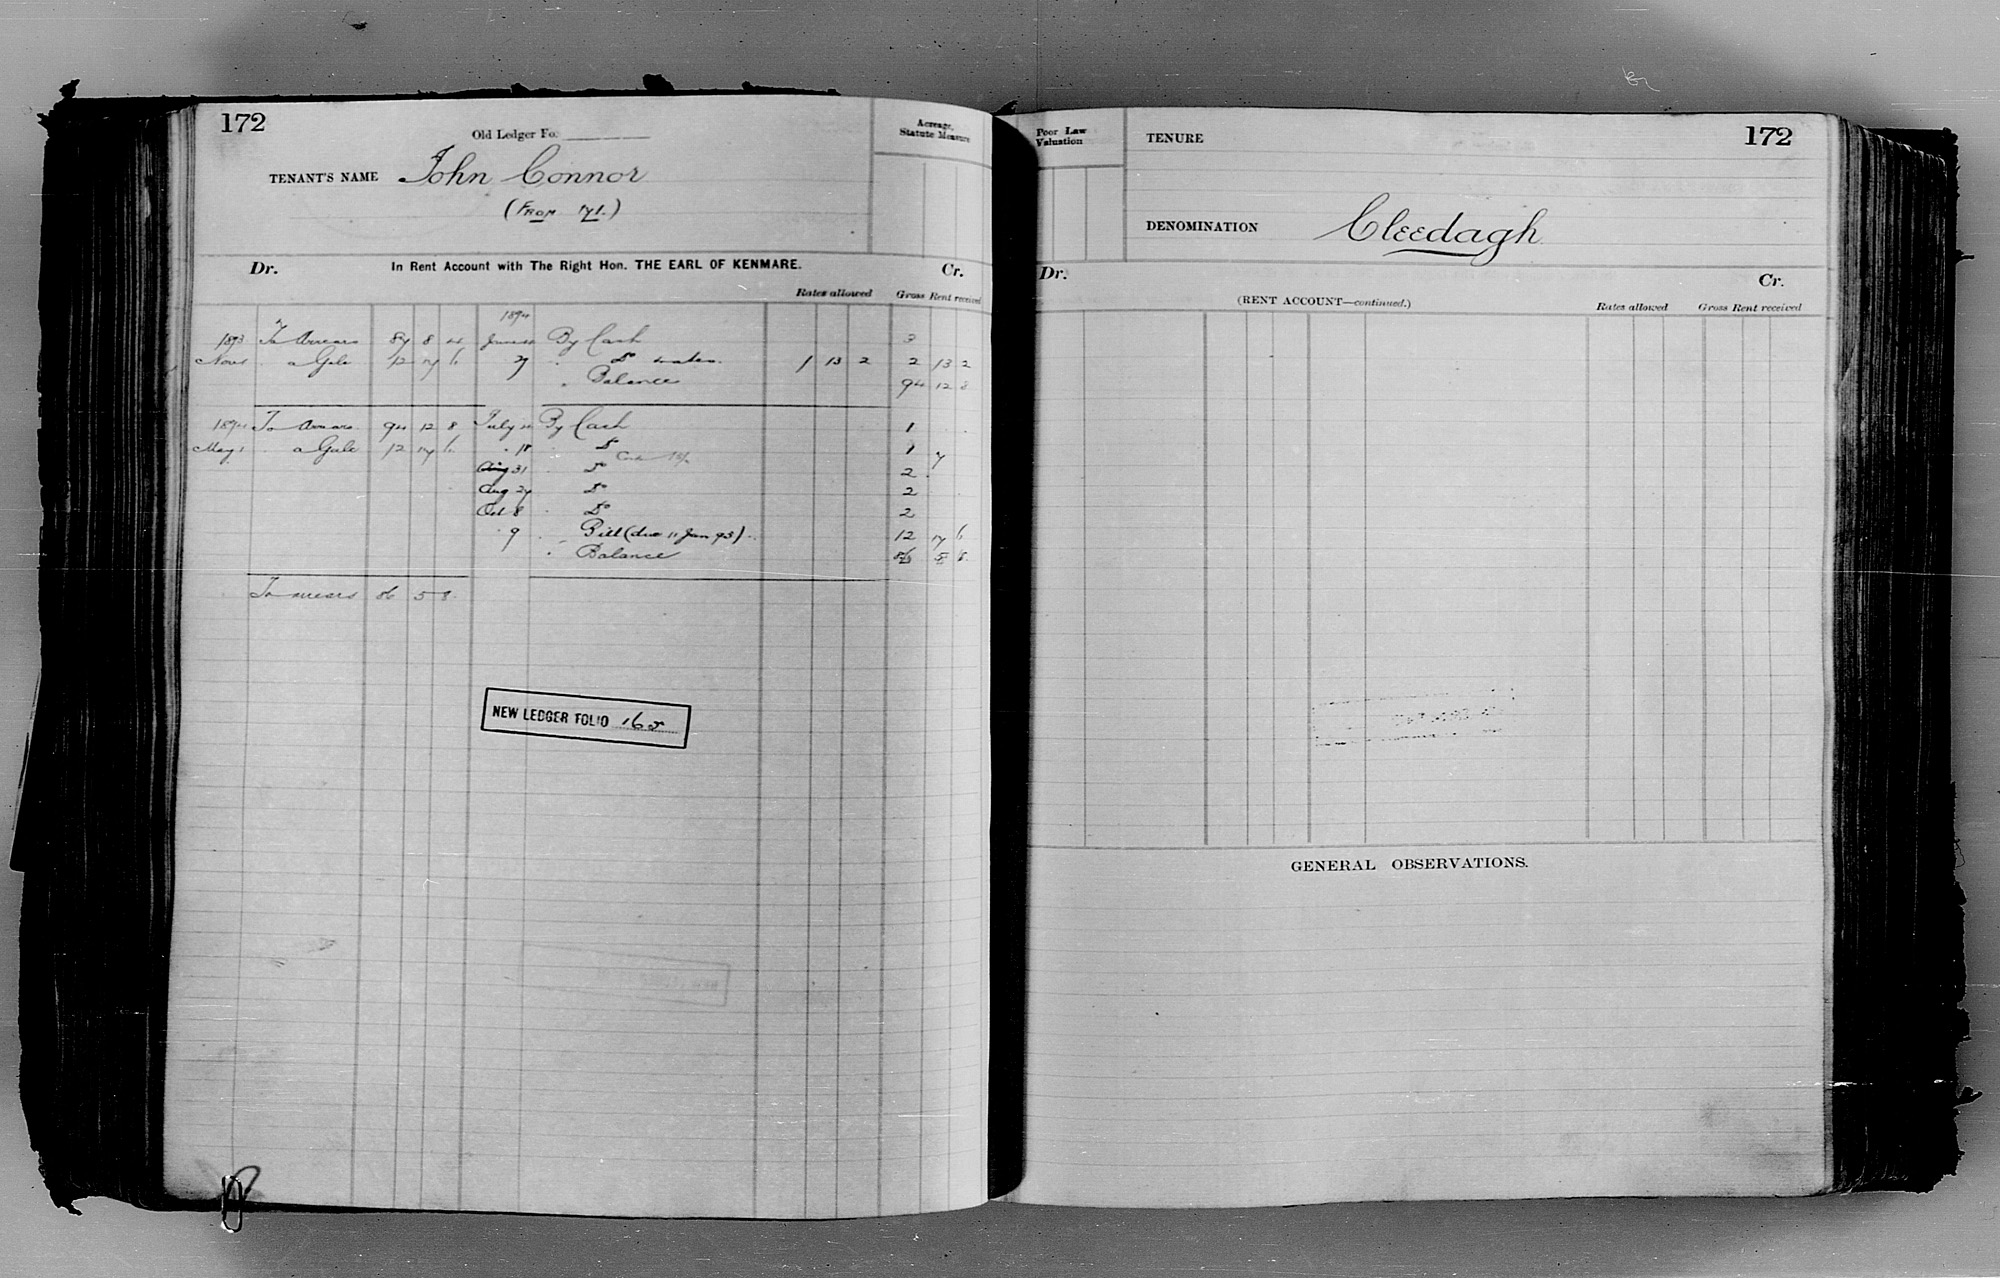 172
Old Ledger Fo.
Acreage, Statute Measure
TENANT'S NAME John Connor
(FROM 171.)
Dr. In Rent Account with The Right Hon. THE EARL OF KENMARE. Cr.
Rates allowed Gross Rent received
1894
1893 To Arrears 87 8 4 June By Cash 3
Nov 1 " a Gale 12 17 6 27 " Do 1 13 2 2 13 2
" Balance 94 12 8
1894 To Arrears 94 12 8 July By Cash 1
May 1 " a Gale 12 17 6 " 18 " Do 1 7
Aug 31 " Do 2
Aug 27 Do 2
Oct 8 " Do 2
" 9 " Bill (due 11 Jan 95) 12 17 6
" Balance 86 5 8
To Arrears 86 5 8
NEW LEDGER FOLIO 165
Poor Law Valuation
TENURE
172
DENOMINATION Cleedagh
Dr. Cr.
(RENT ACCOUNT—continued.) Rates allowed Gross Rent received
GENERAL OBSERVATIONS.